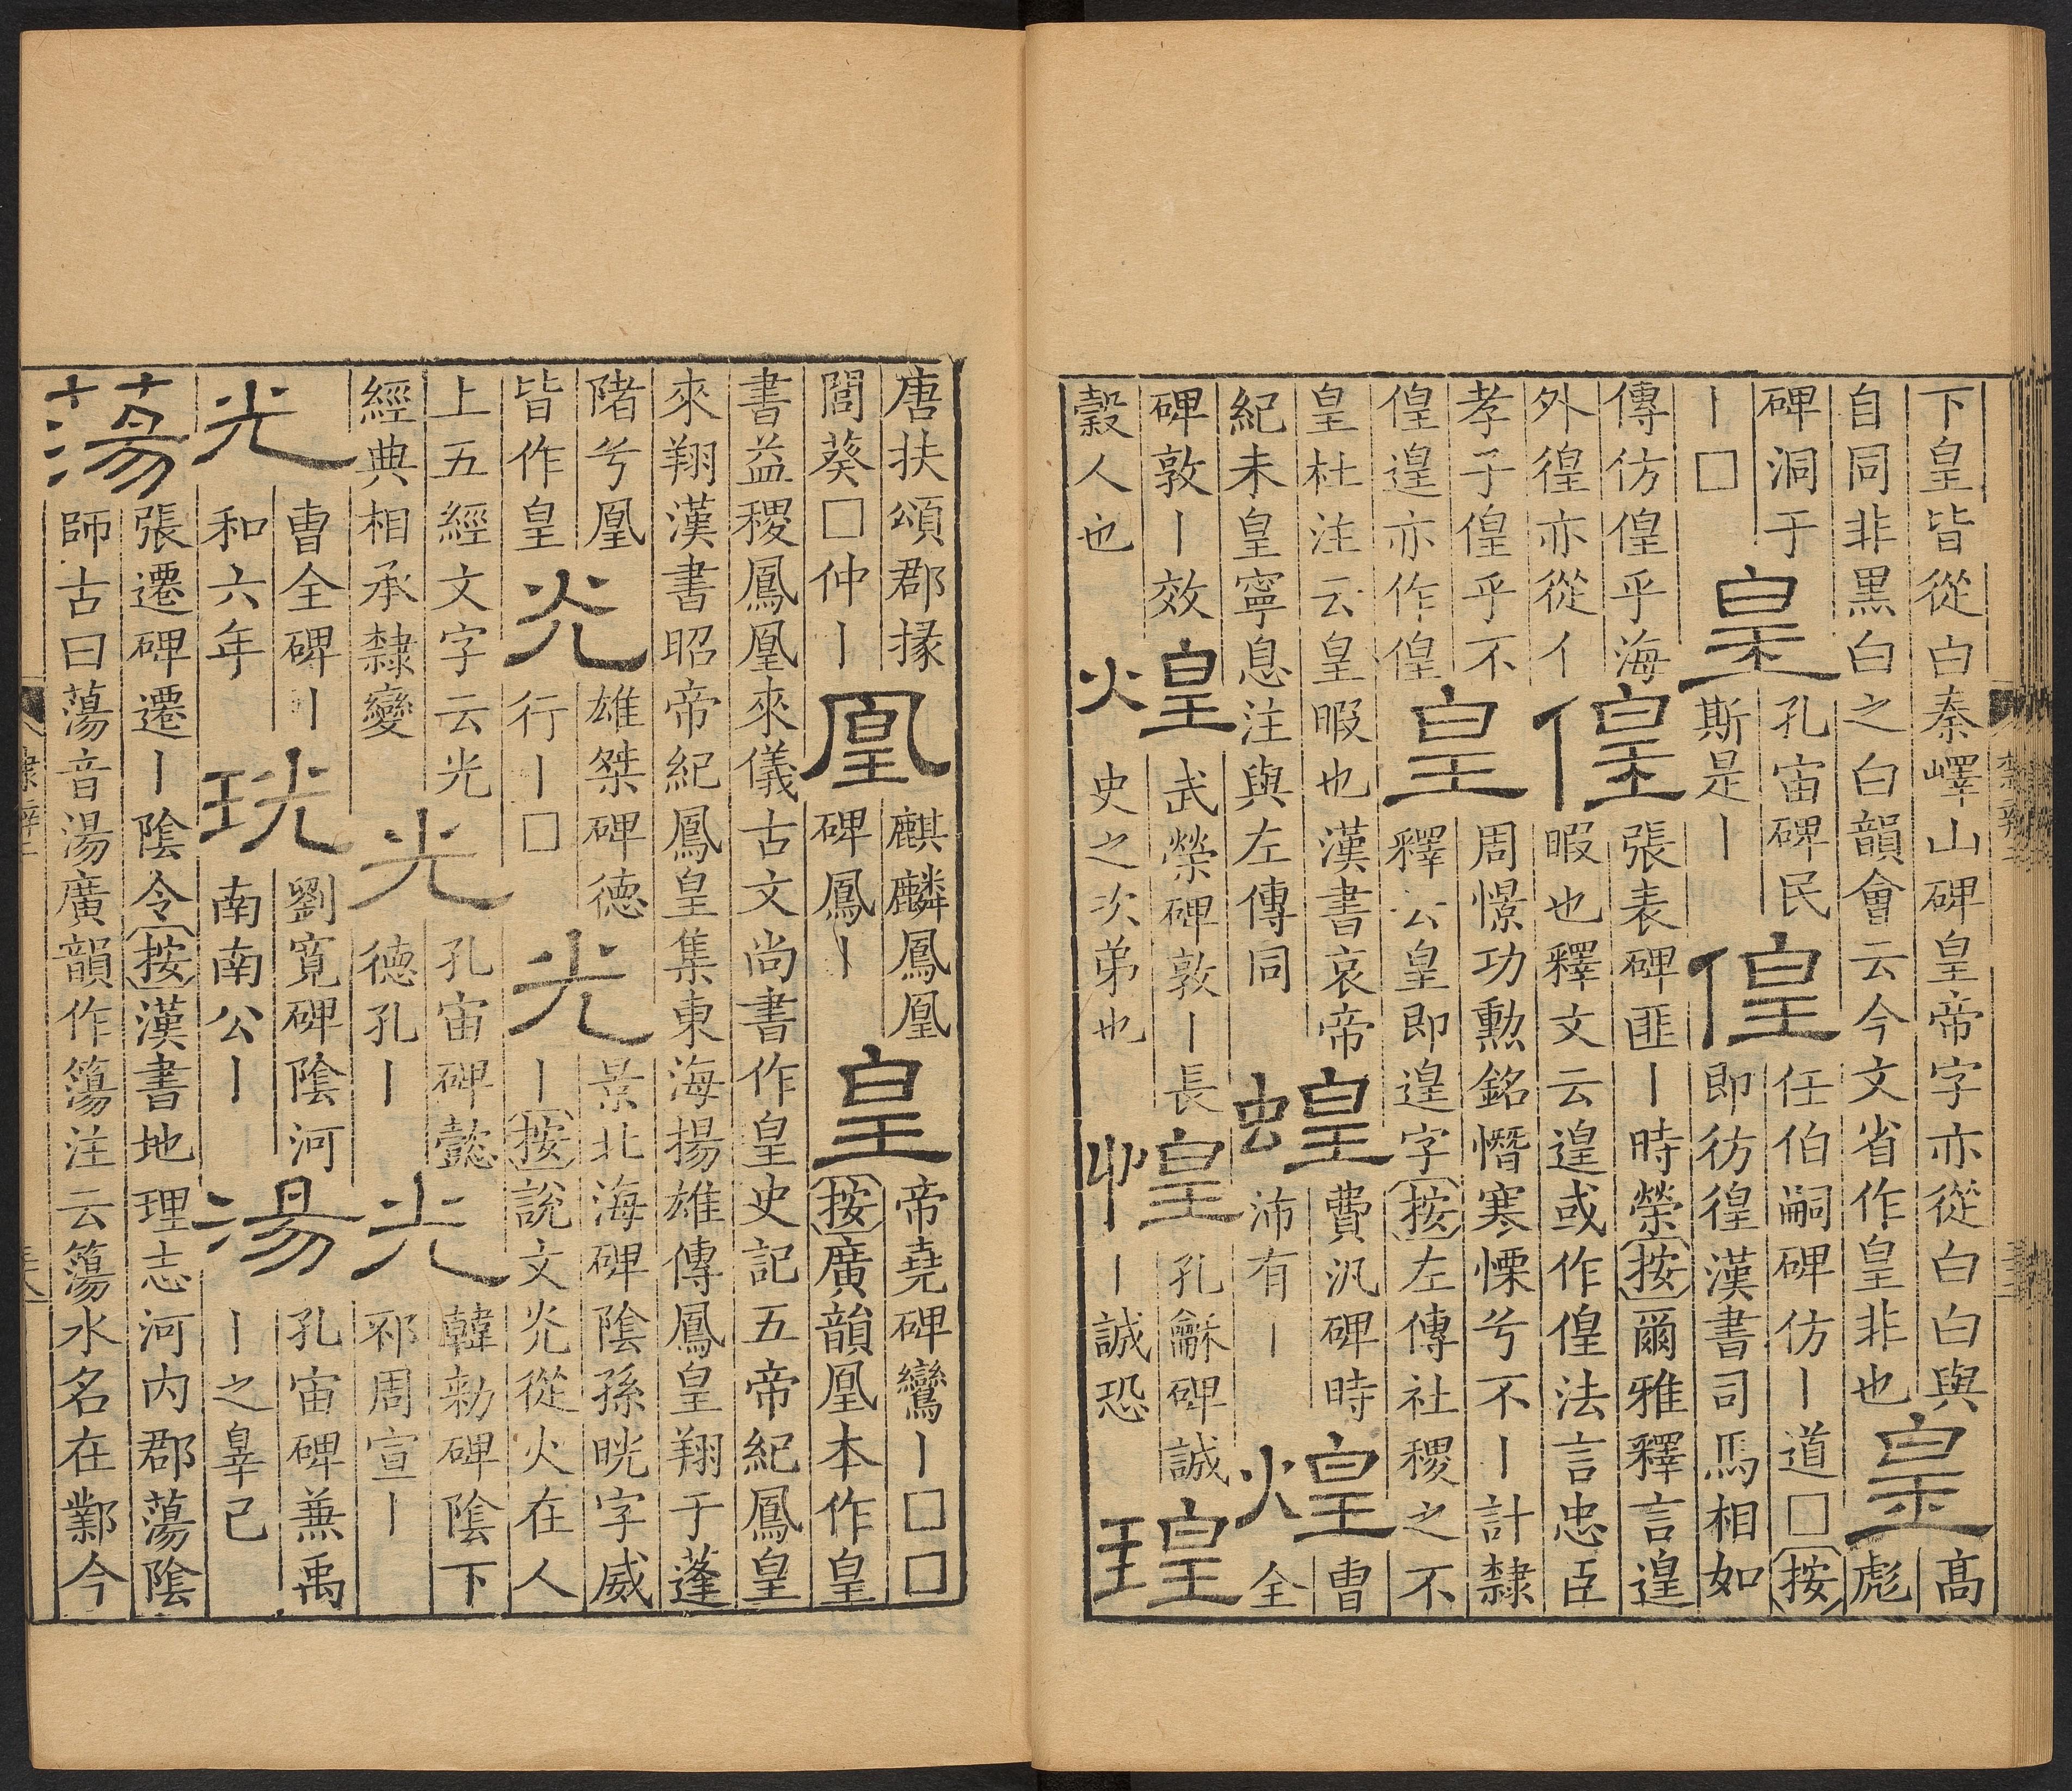 下皇皆從白秦嶧山碑皇帝字亦從白白與
自同非黑白之白韻會云今文省作皇非也
皇
高
彪
碑洞于
丨□
皇
孔宙碑民
斯是丨
偟
任伯嗣碑仿丨道□按
即彷徨漢書司馬相如
傳仿偟乎海
外徨亦從亻
偟
張表碑匪丨時榮按爾雅釋言遑
暇也釋文云遑或作偟法言忠臣
孝子偟乎不
偟遑亦作偟
皇
周憬功勳銘憯寒慄兮不丨計隸
釋云皇即遑字按左傳社稷之不
皇杜注云皇暇也漢書哀帝
紀未皇寧息注與左傳同
蝗
費汎碑時
沛有丨
煌
曹
全
碑敦丨效
穀人也
煌
武榮碑敦丨長
史之次弟也
惶
孔龢碑誠
丨誠恐
瑝
唐扶頌郡掾
閭葵□仲丨
凰
麒麟鳳凰
碑鳳丨
皇
帝堯碑鸞丨□□
按廣韻凰本作皇
書益稷鳳凰來儀古文尚書作皇史記五帝紀鳳皇
來翔漢書昭帝紀鳳皇集東海揚雄傳鳳皇翔于蓬
陼兮凰
皆作皇
灮
雄桀碑德
行丨□
光
景北海碑陰孫晄字威
丨按說文灮從火在人
上五經文字云光
經典相承隸變
光
孔宙碑懿
德孔丨
光
韓勑碑陰下
邳周宣丨
光
曹全碑丨
和六年
珖
劉寬碑陰河
南南公丨
湯
孔宙碑兼禹
丨之辠己
蕩
張遷碑遷丨陰令按漢書地理志河內郡蕩陰
師古曰蕩音湯廣韻作簜注云簜水名在鄴今